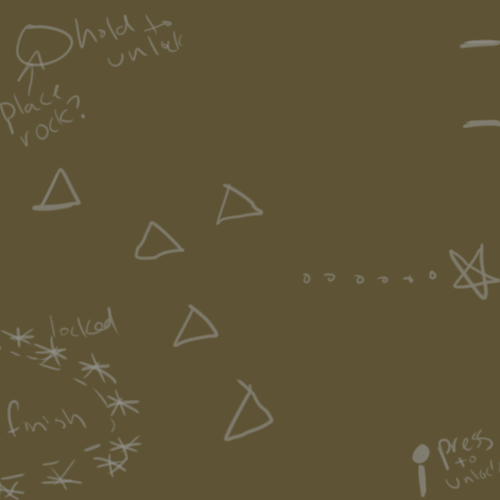 hold to
unlock
place
rock?
locked
finish
press
to
unlock